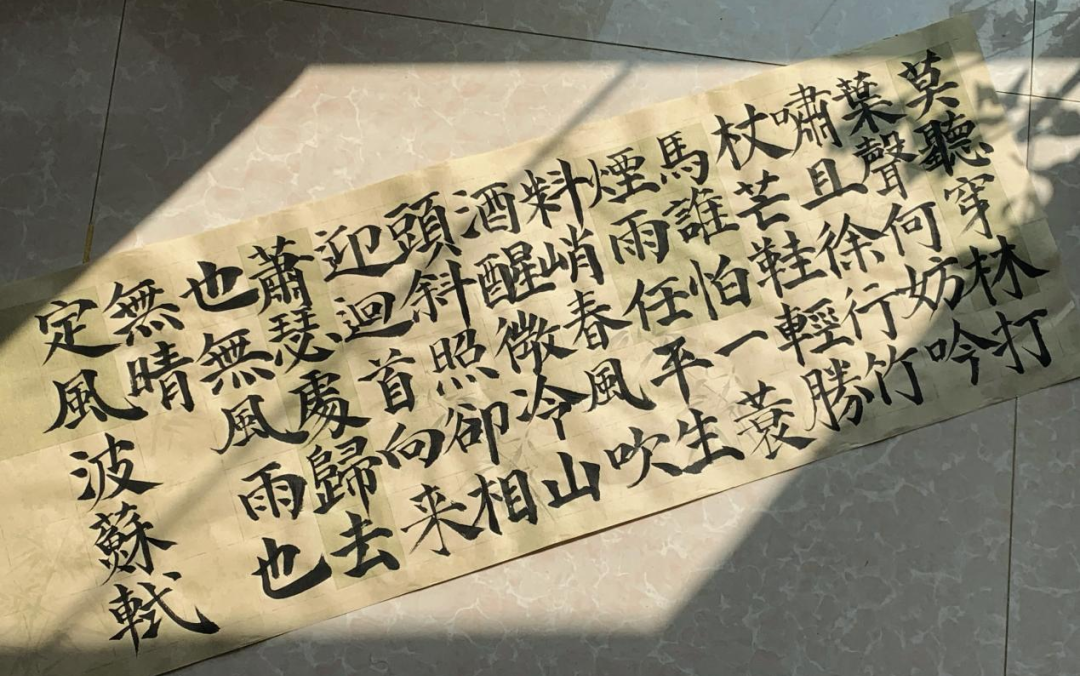 莫聽穿林打
葉聲何妨吟
嘯且徐行竹
杖芒鞋輕勝
馬誰怕一蓑
煙雨任平生
料峭春風吹
酒醒微冷山
頭斜照卻相
迎迴首向来
蕭瑟處歸去
也無風雨也
無晴
定風波蘇軾